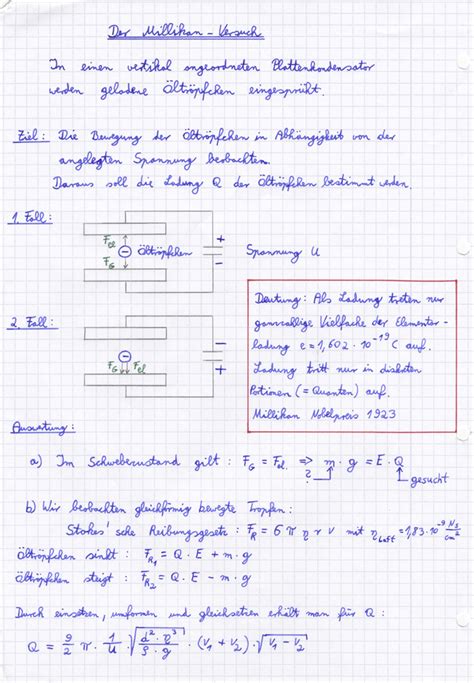 Der Millikan-Versuch
In einen vertikal angeordneten Plattenkondensator
werden geladene Öltröpfchen eingesprüht.
Ziel: Die Bewegung der Öltröpfchen in Abhängigkeit von der
angelegten Spannung beobachten.
Daraus soll die Ladung Q der Öltröpfchen bestimmt werden.
1. Fall:
F_el
⊖ Öltröpfchen
F_G
+
−
Spannung U
2. Fall:
⊖
F_G F_el
−
+
Deutung: Als Ladung treten nur
ganzzahlige Vielfache der Elementar-
ladung e = 1,602 · 10⁻¹⁹ C auf.
Ladung tritt nur in diskreten
Portionen (= Quanten) auf.
Millikan Nobelpreis 1923
Auswertung:
a) Im Schwebezustand gilt: F_G = F_el. => m · g = E · Q
? gesucht
b) Wir beobachten gleichförmig bewegte Tropfen:
Stokes'sche Reibungsgesetz: F_R = 6 π η r v mit η_Luft = 1,83 · 10⁻⁹ Ns/cm²
Öltröpfchen sinkt: F_R₁ = Q · E + m · g
Öltröpfchen steigt: F_R₂ = Q · E − m · g
Durch einsetzen, umformen und gleichsetzen erhält man für Q:
Q = 9/2 π · 1/U · √(d² · η³ / ρ · g) · (v₁ + v₂) · √(v₁ − v₂)